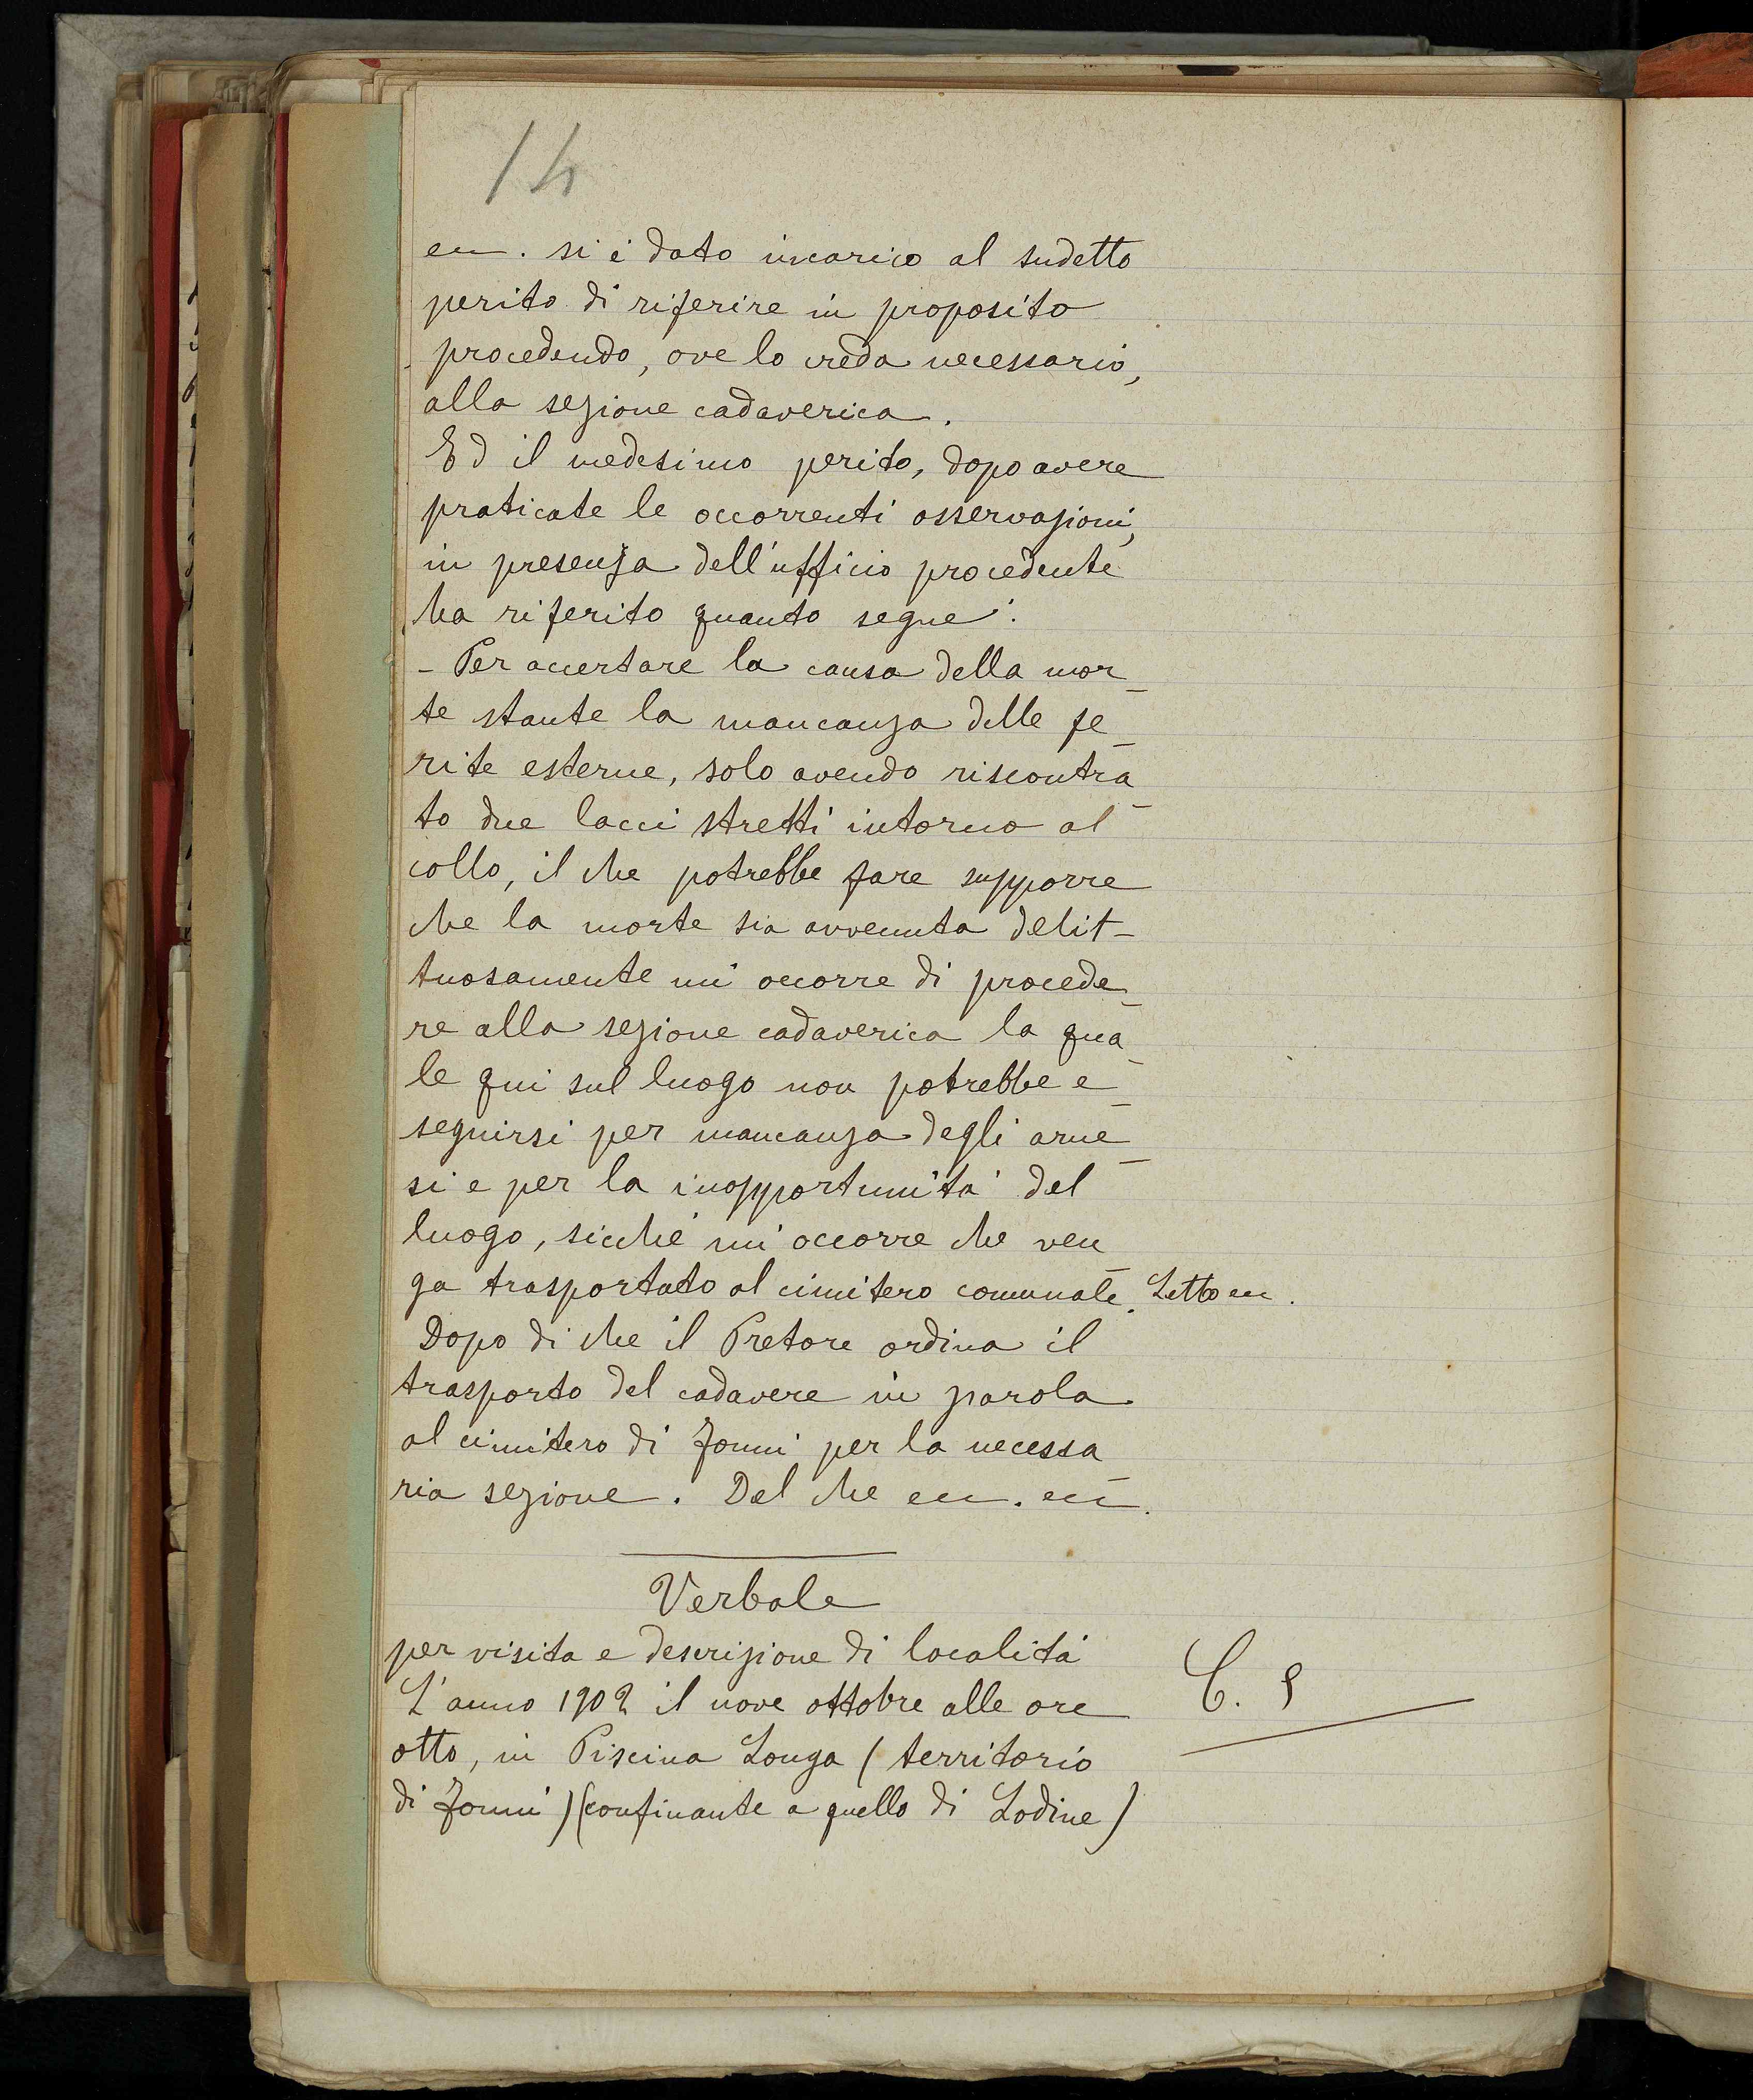 14
ecc. si è dato incarico al sudetto
perito di riferire in proposito
procedendo, ove lo creda necessario,
alla sezione cadaverica.
Ed il medesimo perito, dopo avere
praticate le occorrenti osservazioni,
in presenza dell'ufficio procedente
ha riferito quanto segue:
- Per accertare la causa della mor_
te stante la mancanza delle fe_
rite esterne, solo avendo riscontra_
to due lacci stretti intorno al
collo, il che potrebbe fare supporre
che la morte sia avvenuta delit-
tuosamente mi occorre di procede_
re alla sezione cadaverica la qua_
le qui sul luogo non potrebbe e_
seguirsi per mancanza degli arne_
si e per la inopportunità del
luogo, sicchè mi occorre che ven_
ga trasportato al cimitero comunale. Letto ecc.
Dopo di che il Pretore ordina il
trasporto del cadavere in parola
al cimitero di Fonni per la necessa_
ria sezione. Del che ecc. ecc.
Verbale
per visita e descrizione di località
L'anno 1902 il nove ottobre alle ore
otto, in Piscina Longa (territorio
di Fonni) (confinante a quello di Lodine)
C. 9